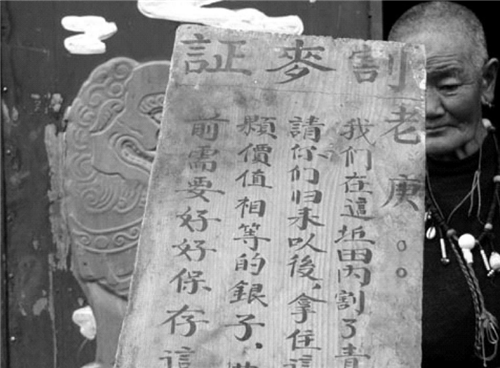 割麥証
老庚。。
我们在這坵田内割了青
請你们归来以後，拿住這
顆價值相等的銀子、
前需要好好保存這